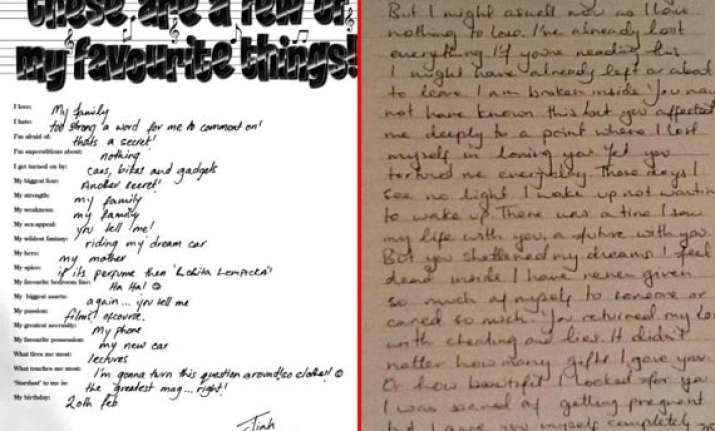 these are a few of
my favourite things!
I love: My family
I hate: too strong a word for me to comment on!
I'm afraid of: thats a secret!
I'm superstitious about: nothing
I get turned on by: cars, bikes and gadgets
My biggest fear: Another secret!
My strength: my family
My weakness: my family
My sex appeal: you tell me!
My wildest fantasy: riding my dream car
My hero: my mother
My spice: if its perfume then 'Lolita Lempicka'!
My favourite bedroom line: Ha Ha!
My biggest assets: again... you tell me
My passion: films! ofcourse.
My greatest necessity: My phone
My favourite possession: my new car
What tires me most: lectures
What touches me most: I'm gonna turn this question around/so clothes!
'Stardust' to me is: the greatest mag... right!
My birthday: 20th Feb
But I might aswell now as I have
nothing to lose. I've already lost
everything. If you're reading this
I might have already left or about
to leave. I am broken inside. You may
not have known this but you affected
me deeply to a point where I lost
myself in loving you. Yet you
tortured me everyday. These days I
see no light I wake up not wanting
to wake up. There was a time I saw
my life with you, a future with you.
But you shattered my dreams. I feel
dead inside. I have never given
so much of myself to someone or
cared so much. You returned my lo
with cheating and lies. It didn't
matter how many gifts I gave you.
Or how beautiful I looked for you.
I was scared of getting pregnant
but I gave you myself completely